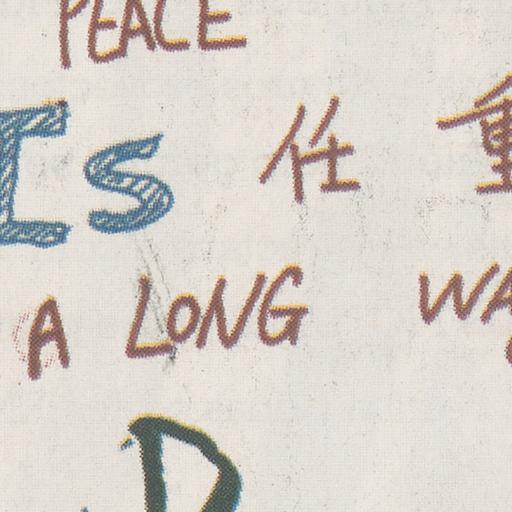 PEACE
Is 任 重
A LONG WA
D